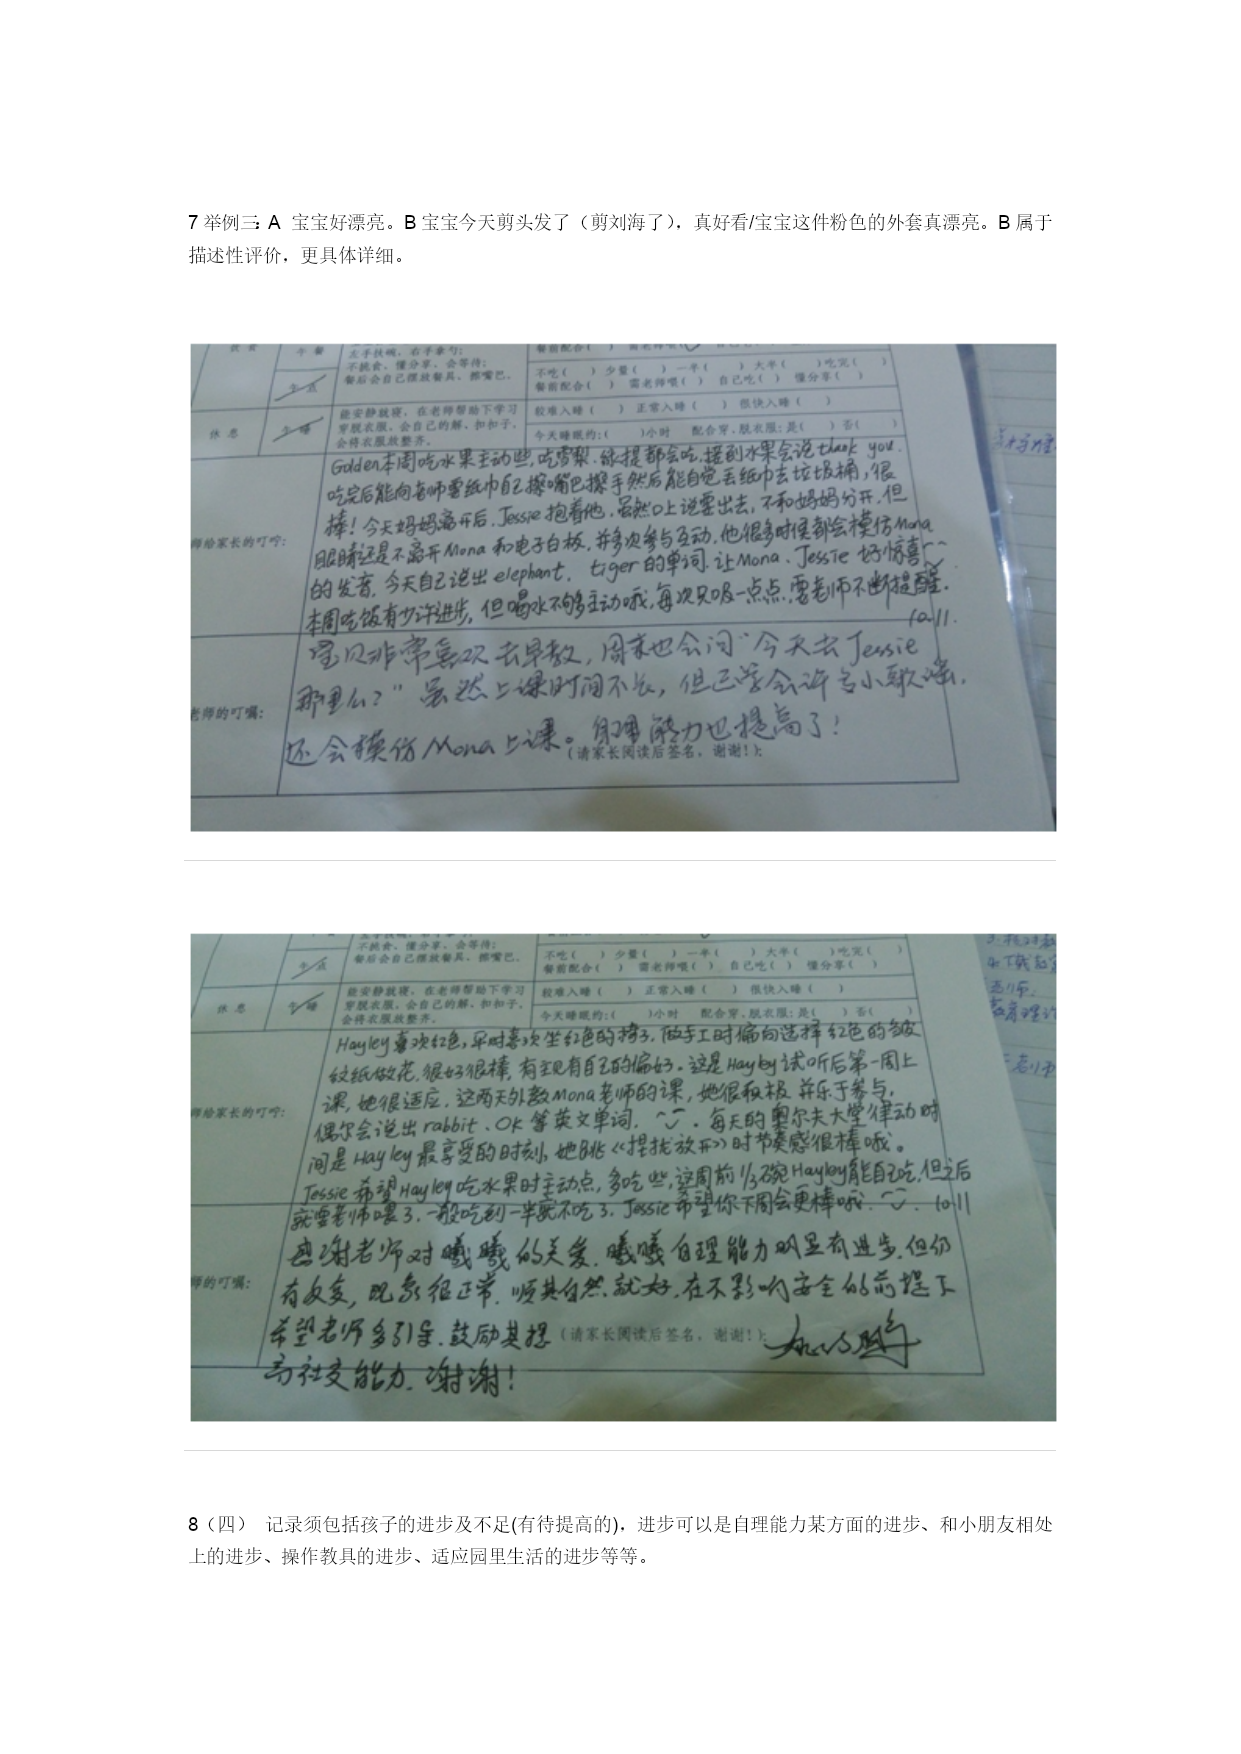 7 举例三: A 宝宝好漂亮。B 宝宝今天剪头发了（剪刘海了），真好看/宝宝这件粉色的外套真漂亮。B 属于
描述性评价，更具体详细。
午餐
左手扶碗，右手拿勺；
不挑食、懂分享、会等待；
餐后会自己摆放餐具、擦嘴巴。
午点
不吃（ ）少量（ ）一半（ ）大半（ ）吃完（ ）
餐前配合（ ）需老师喂（ ）自己吃（ ）懂分享（ ）
休息
午睡
能安静就寝，在老师帮助下学习
穿脱衣服，会自己的解、扣扣子，
会将衣服放整齐。
较难入睡（ ）正常入睡（ ）很快入睡（ ）
今天睡眠约：（ ）小时 配合穿、脱衣服：是（ ）否（ ）
师给家长的叮咛：
Golden本周吃水果主动些，吃雪梨、绿提都会吃，接到水果会说thank you.
吃完后能向老师要纸巾自己擦嘴巴擦手然后能自觉丢纸巾去垃圾桶，很
棒！今天妈妈离开后，Jessie抱着他，虽然口上说要出去，不和妈妈分开，但
眼睛还是不离开Mona和电子白板，并多次参与互动，他很多时候都会模仿Mona
的发音，今天自己说出elephant, tiger的单词，让Mona、Jessie好惊喜
本周吃饭有少许进步，但喝水不够主动哦，每次只吸一点点，要老师不断提醒.
10.11.
老师的叮嘱：
宝贝非常喜欢去早教，周末也会问“今天去Jessie
那里么？”虽然上课时间不长，但已学会许多小歌谣，
还会模仿Mona上课。自理能力也提高了！
（请家长阅读后签名，谢谢！）：
不挑食、懂分享、会等待；
餐后会自己摆放餐具、擦嘴巴。
午点
不吃（ ）少量（ ）一半（ ）大半（ ）吃完（ ）
餐前配合（ ）需老师喂（ ）自己吃（ ）懂分享（ ）
休息
午睡
能安静就寝，在老师帮助下学习
穿脱衣服，会自己的解、扣扣子，
会将衣服放整齐。
较难入睡（ ）正常入睡（ ）很快入睡（ ）
今天睡眠约：（ ）小时 配合穿、脱衣服：是（ ）否（ ）
师给家长的叮咛：
Hayley喜欢红色，平时喜欢坐红色的椅子，做手工时偏向选择红色的皱
纹纸做花，很好很棒，有主见有自己的偏好。这是Hayley试听后第一周上
课，她很适应，这两天外教Mona老师的课，她很积极并乐于参与，
偶尔会说出rabbit、OK等英文单词. 每天的奥尔夫大学律动时
间是Hayley最享受的时刻，她跳《捏拢放开》时节奏感很棒哦。
Jessie希望Hayley吃水果时主动点，多吃些，这周前1/3碗Hayley能自己吃，但之后
就要老师喂了，一般吃到一半就不吃了. Jessie希望你下周会更棒哦. 10.11
师的叮嘱：
感谢老师对曦曦的关爱，曦曦自理能力明显有进步，但仍
有反复，现象很正常，顺其自然就好，在不影响安全的前提下
希望老师多引导、鼓励其提
（请家长阅读后签名，谢谢！）：
高社交能力，谢谢！
8（四） 记录须包括孩子的进步及不足(有待提高的)，进步可以是自理能力某方面的进步、和小朋友相处
上的进步、操作教具的进步、适应园里生活的进步等等。